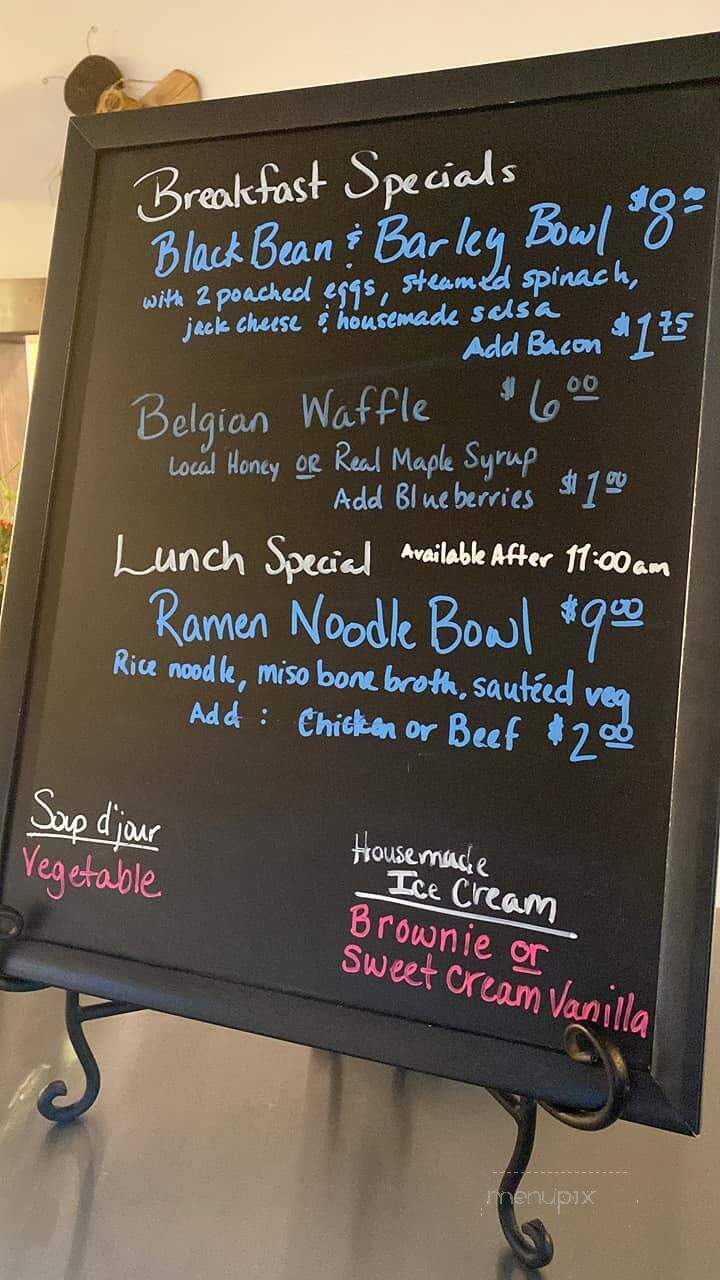 Breakfast Specials
Black Bean & Barley Bowl $8.00
with 2 poached eggs, steamed spinach,
jack cheese & housemade salsa
Add Bacon $1.75
Belgian Waffle $6.00
Local Honey OR Real Maple Syrup
Add Blueberries $1.00
Lunch Special Available After 11:00am
Ramen Noodle Bowl $9.00
Rice noodle, miso bone broth, sautéed veg
Add: Chicken or Beef $2.00
Soup d'jour
Vegetable
Housemade
Ice Cream
Brownie or
Sweet Cream Vanilla
menupix